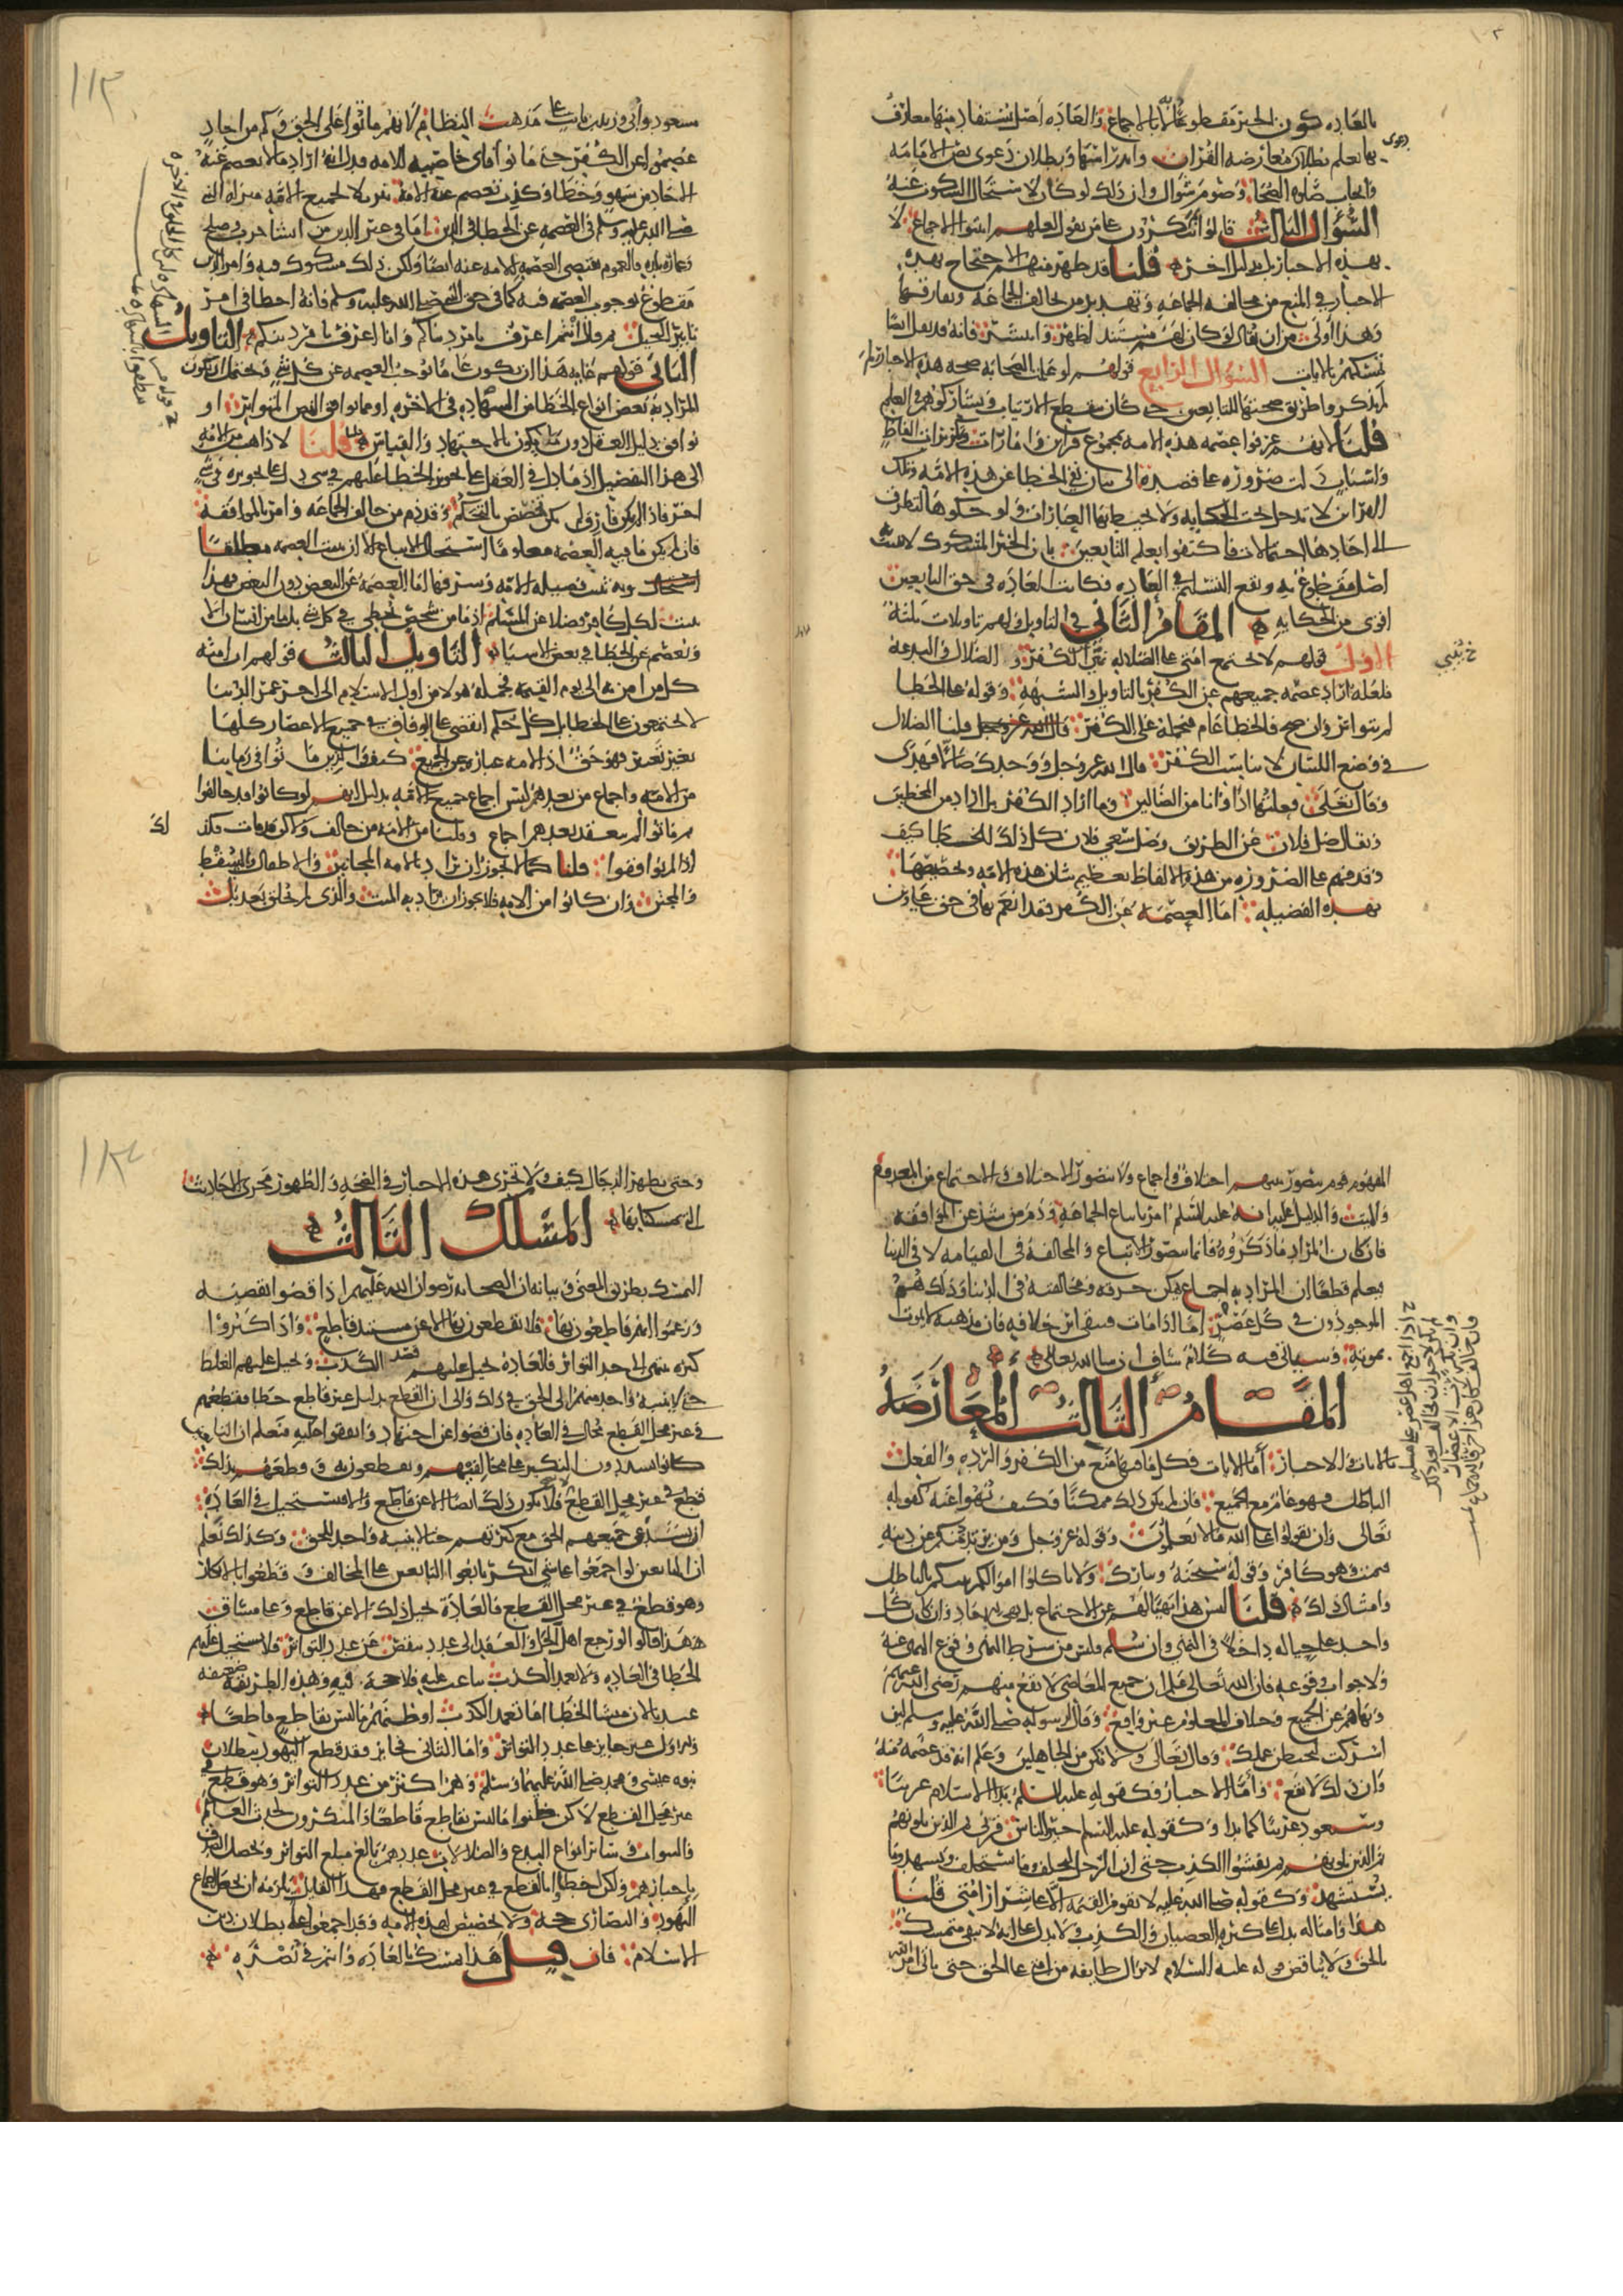 بالعادة كون الخبر مقطوعا به لا بالاجماع والعادة اصل يستفاد منها معارف
بها نعلم بطلان دعوى معارضة القران واندراسها وبطلان دعوى نص الامامة
وايجاب صلوة الضحى وصوم شوال وان ذلك لو كان لاستحال السكوت عنه
السؤال الثالث قالوا تنكرون على من يقول لعلهم اثبتوا الاجماع لا
بهذه الاخبار بل بدليل اخر قلنا قد ظهر منهم الاحتجاج بهذه
الاخبار في المنع من مخالفة الجماعة وتهديد من يخالف الجماعة ويفارقها
وهذا اولى من ان يقال لو كان لهم مستند لظهر وانتشر فانه قد نقل ايضا
تمسكهم بالايات السؤال الرابع قولهم لو علمت الصحابة صحة هذه الاخبار لم
لم يذكروا طريق صحتها للتابعين حتى كان ينقطع الارتياب ويشاركونهم في العلم
قلنا لانهم عرفوا عصمة هذه الامة بمجموع قراين وامارات وتكريرات الفاظ
واسباب دلت ضرورة على قصده الى بيان نفي الخطا عن هذه الامة وتلك
القراين لا تدخل تحت الحكاية ولا تحيط بها العبارات ولو حكوها لتطرق
الى احادها احتمالات فاكتفوا بعلم التابعين بان الخبر المشكوك لا يثبت به
اصل مقطوع به ويقع التسليم في العادة فكانت العادة في حق التابعين
اقوى من الحكاية المقام الثاني في التاويل ولهم تاويلات ثلثة
الاول قولهم لا تجتمع امتي على الضلالة ينبي عن الكفر و الضلال في البدعة
فلعله اراد عصمة جميعهم عن الكفر بالتاويل والشبهة وقوله على الخطا
لم يتواتر وان صح فالخطا عام فيحمله على الكفر قلنا الضلال
في وضع اللسان لا يناسب الكفر قال الله عز وجل ووجدك ضالا فهدى
وقال تعالى فعلتها اذا وانا من الضالين وما اراد الكفر بل اراد من المخطين
ويقال ضل فلان عن الطريق وضل سعي فلان كل ذلك للخطا كيف
وقد فهم على الضرورة من هذه الالفاظ تعظيم شان هذه الامة وتخصيصها
بهذه الفضيلة اما العصمة عن الكفر فقد انعم بها في حق علي وابن
مسعود وابي وزيد بن ثابت على مذهب النظام لانهم ماتوا على الحق وكم من احاد
عصموا عن الكفر حتى ماتوا فاي خاصية للامة فدل انه اراد ما لا يعصم عنه
الاحاد من سهو وخطا وكذب تعصم عنه الامة تنزيلا لجميع الامة منزلة النبي
صلى الله عليه وسلم في العصمة عن الخطا في الدين اما في غير الدين من انشا حرب وصلح
وعمارة بلدة فالعموم يقتضي العصمة للامة عنه ايضا ولكن ذلك مشكوك فيه وامر الدين
مقطوع بوجوب العصمة فيه كما في حق النبي صلى الله عليه وسلم فانه اخطا في امر
تابير النخل ثم قال انتم اعرف بامر دنياكم وانا اعرف بامر دينكم التاويل
الثاني قولهم غاية هذا ان يكون عاما يوجب العصمة عن كل شي ويحتمل ان يكون
المراد به بعض انواع الخطا من الشهادة في الاخرة او ما يوافق النص المتواتر او
يوافق دليل العقل دون ما يكون بالاجتهاد والقياس قلنا لا ذاهب من الامة
الى هذا التفصيل اذ ما دل في العقل على تجويز الخطا عليهم في شي دل على تجويزه في شي
اخر فاذا لم يكن فارق لم يكن تخصص بالتحكم وقد ذم من خالف الجماعة وامر بالموافقة
فان لم يكن ما فيه العصمة معلوما استحال الاتباع الا ان يثبت العصمة مطلقا
وبه تثبت فضيلة الامة وشرفها اما العصمة عن البعض دون البعض فهذا
يثبت لكل كافر فضلا عن المسلم اذ ما من شخص يخطي في كل شي بل ما من انسان الا
ويعصم عن الخطا في بعض الاشيا التاويل الثالث قولهم ان امته
كل من امن به الى يوم القيمة فجملة هولا من اول الاسلام الى اخر عمر الدنيا
لا يجتمعون على الخطا بل كل حكم انقضى على الوفاق في جميع الاعصار كلها
بغير تغير فهو حق اذ الامة عبارة عن الجميع كيف والذين ماتوا في زماننا
من الامة واجماع من بعدهم ليس اجماع جميع الامة بدليل انهم لو كانوا قد خالفوا
ثم ماتوا لم ينعقد بعدهم اجماع وقلنا من الامة من خالف ولكن قد مات فكذلك
اذا لم يوافقوا قلنا كما لا يجوز ان يراد بالامة المجانين والاطفال والسقط
والمجتن وان كانوا من الامة فلا يجوز ان يراد به الميت والذي لم يخلق بعد بل
المفهوم قوم يتصور منهم اختلاف واجماع ولا يتصور الاختلاف والاجتماع من المعدوم
والميت والدليل عليه انه عليه السلم امر باتباع الجماعة وذم من شذ عن الموافقة
فان كان المراد ما ذكروه فانما يتصور الاتباع والمخالفة في القيامة لا في الدنيا
فيعلم قطعا ان المراد به اجماع يمكن خرقه ومخالفته في الدنيا وذلك هم
الموجودون في كل عصر اما اذا مات فيبقى اثر خلافه فان مذهبه لا يموت
بموته وسياتي فيه كلام شاف ان شا الله تعالى
المقام الثالث المعارضة
بالايات والاخبار اما الايات فكل ما فيها منع من الكفر والردة والفعل
الباطل فهو عام مع الجميع فان لم يكن ذلك ممكنا فكيف نهوا عنه كقوله
تعالى وان تقولوا على الله ما لا تعلمون وقوله عز وجل ومن يرتدد منكم عن دينه
فيمت وهو كافر وقوله سبحنه ولا تاكلوا اموالكم بينكم بالباطل
وامثال ذلك قلنا ليس هذا نهيا لهم عن الاجتماع بل نهي للاحاد وان كان كل
واحد على حياله داخلا في النهي وان سلم فليس من شرط النهي وقوع المنهي عنه
ولا جواز وقوعه فان الله تعالى علم ان جميع المعاصي لا تقع منهم رضي الله عنهم
ونهاهم عن الجميع وخلاف المعلوم غير واقع وقال لرسوله صلى الله عليه وسلم لين
اشركت ليحبطن عملك وقال تعالى ولا تكن من الجاهلين وعلم انه قد عصمه منه
وان ذلك لا يقع واما الاخبار فكقوله عليه السلم بدا الاسلام غريبا
وسيعود غريبا كما بدا وكقوله عليه السلم خير الناس قرني ثم الذين يلونهم
ثم الذين يلونهم ثم يفشوا الكذب حتى ان الرجل ليحلف وما يستحلف ويشهد وما
يستشهد وكقوله صلى الله عليه لا تقوم القيمة الا على شرار امتي قلنا
هذا وامثاله يدل على كثرة العصيان والكذب ولا يدل على انه لا يبقى متمسك
بالحق ولا يناقض قوله عليه السلام لا تزال طايفة من امتي على الحق حتى ياتي امر الله
وحتى يظهر الدجال كيف ولا تجري هذه الاخبار في الصحة والظهور مجرى الاحاديث
التي تمسكنا بها المسلك الثالث
التمسك بطريق المعنى وبيانه ان الصحابة رضوان الله عليهم اذا قضوا بقضية
وزعموا انهم قاطعون بها فلا يقطعون بها الا عن مستند قاطع واذا كثروا
كثرة تنتهي الى حد التواتر فالعادة تحيل عليهم قصد الكذب وتحيل عليهم الغلط
حتى لا ينتبه واحد منهم الى الحق في ذلك والى ان القطع بدليل غير قاطع خطا فقطعهم
في غير محل القطع محال في العادة فان قضوا عن اجتهاد واتفقوا عليه فنعلم ان التابعين
كانوا يشددون النكير على مخالفيهم ويقطعون به وقطعهم بذلك
قطع في غير محل القطع فلا يكون ذلك ايضا الا عن قاطع والا فيستحيل في العادة
ان يشذ عن جميعهم الحق مع كثرتهم حتى لا ينتبه واحد للحق وكذلك نعلم
ان التابعين لو اجمعوا على شي انكر تابعوا التابعين على المخالف وقطعوا بالانكار
وهو قطع في غير محل القطع فالعادة تحيل ذلك الا عن قاطع وعلى مساق
هذا قالوا لو رجع اهل الحل والعقد الى عدد ينقص عن عدد التواتر فلا يستحيل عليهم
الخطا في العادة ولا تعمد الكذب لباعث عليه فلا حجة فيه وهذه الطريقة ضعيفة
عندنا لان منشا الخطا اما تعمد الكذب او ظنهم ما ليس بقاطع قاطعا
والاول غير جايز على عدد التواتر واما الثاني فجايز فقد قطع اليهود ببطلان
نبوة عيسى ومحمد صلى الله عليهما وسلم وهم اكثر من عدد التواتر وهو قطع في
غير محل القطع لاكن ظنوا ما ليس بقاطع قاطعا والمنكرون لحدث العالم
والنبوات وساير انواع البدع والضلالات عددهم بالغ مبلغ التواتر ويحصل الصدق
باخبارهم ولكن اخطاوا بالقطع في غير محل القطع فهذا القايل يلزمه ان يجعل اجماع
اليهود والنصارى حجة ولا تخصيص لهذه الامة وقد اجمعوا على بطلان دين
الاسلام فان قيل هذا تمسك بالعادة وانتم في نصرة